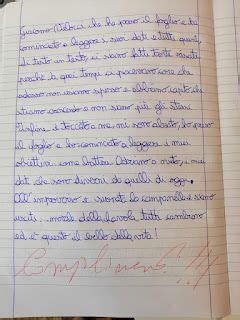 Giacomo Velocci che ha preso il foglio e ha
cominciato a leggere i suoi dati e tutti quanti,
di tanto in tanto, ci siamo fatti tante risate
perché a quei tempi ci piacevano cose che
adesso non invece spesso e abbiamo capito che
stiamo crescendo e non siamo più gli stessi
Infine, è toccato a me, mi sono alzato, ho preso
il foglio e ho cominciato a leggere i miei
obiettivi come
dati che sono diversi da quelli di oggi.
All'improvviso è suonata la campanella e siamo
usciti... morale della favola tutti cambiano
ed è questo il bello della vita!
Complimenti!!!